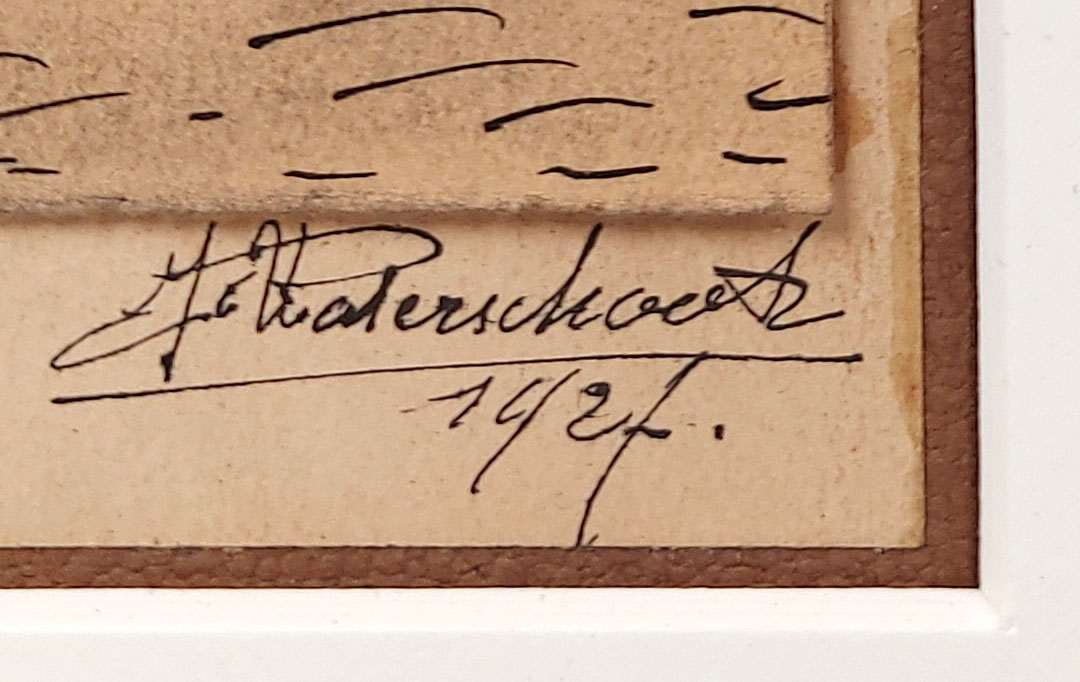 J. Waterschoot
1924.